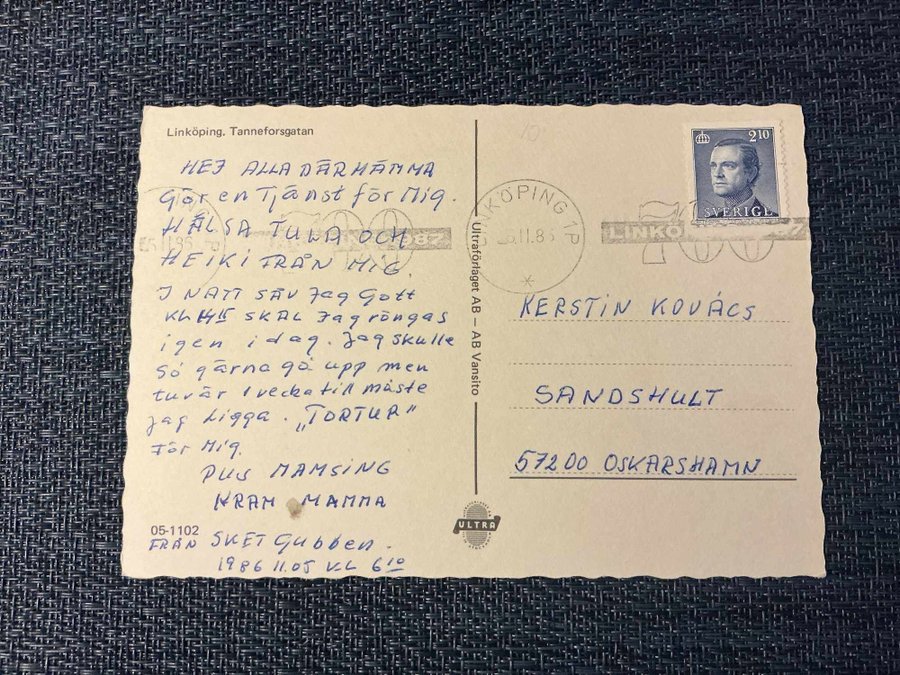 Linköping, Tanneforsgatan
HEJ ALLA DÄRHÄMMA
Gör en Tjänst för Mig.
HÄLSA TULLA OCH
HEIKI FRÅN MIG.
I NATT SÅV Jag Gott
KL SKAL Jag röngas
igen idag. Jag skulle
Så gärna gå upp men
tuvär 1 vecka til måste
jag Ligga. „TORTUR"
För Mig.
PUS MAMSING
KRAM MAMMA
05-1102
FRÅN SKET Gubben.
1986 11.05 KL 6 10
Ultraförlaget AB – AB Vansito
ULTRA
2.10
SVERIGE
KÖPING 1P
5.11.86
LINKÖ
700
87
KERSTIN KOVÁCS
SANDSHULT
57200 OSKARSHAMN